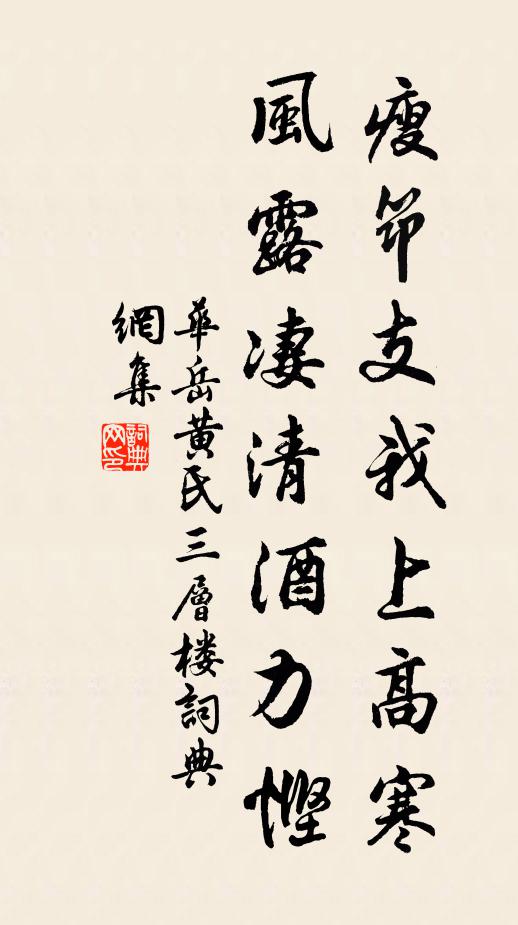 瘦筇支我上高寒
風露凄清酒力慳
華岳黄民三層楼詞典
網集
詞典
网印